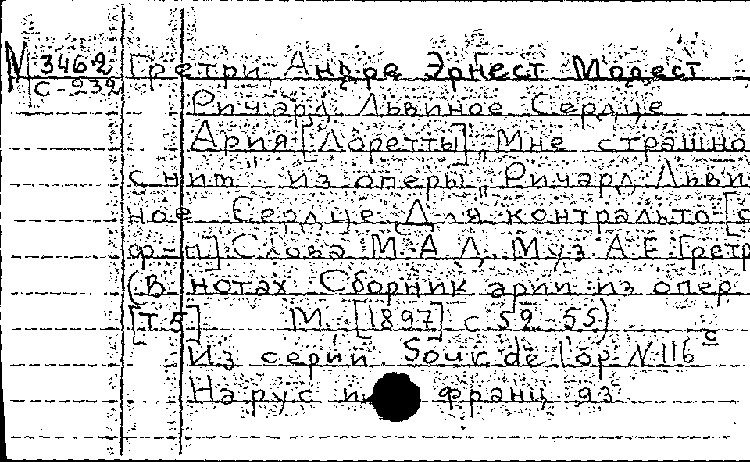 N 3462 Гретри Андре Эрнест Модест
С-232
Ричард Львиное Сердце
Ария [Лоретты] „Мне страшно
снит" из оперы „Ричард Льви
ное Сердце Для контральто [с
ф-п] Слова М. А. Д. Муз А. Е. Гретр
(В нотах Сборник арий из опер
[Т 5] М. [1897] с 52-55)
Из серии Souc de l'op N 116 c
На рус и франц яз